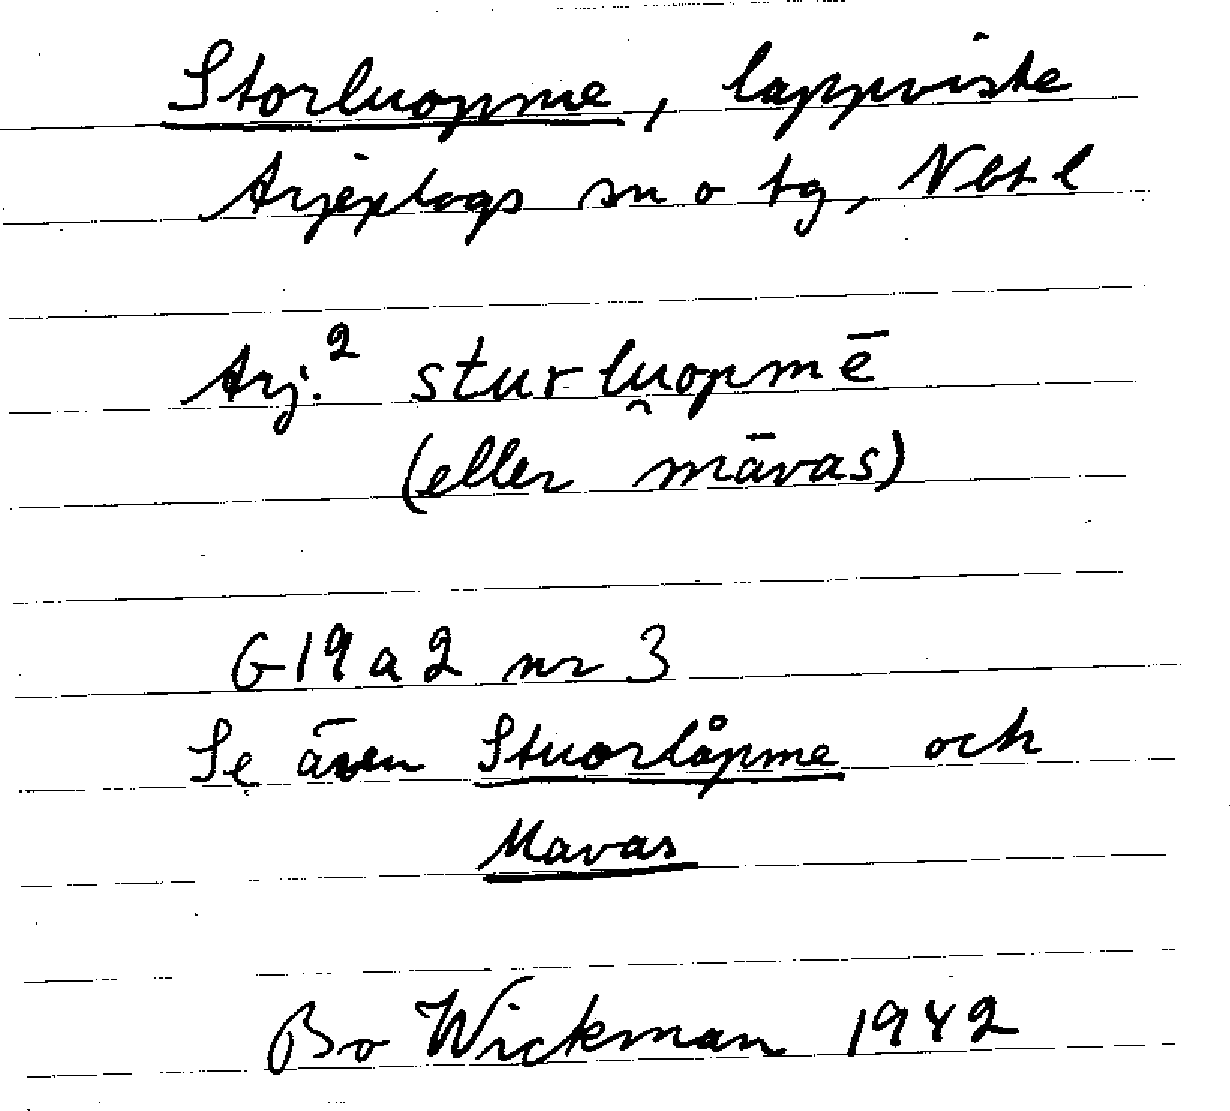 Storluopme, lappviste
Arjeplogs sn o tg, Nbt l
Arj.² sturlu̯opmē
(eller māvas)
G19a2 nr 3
Se även Stuorlåpme och
Mavas
Bo Wickman 1942